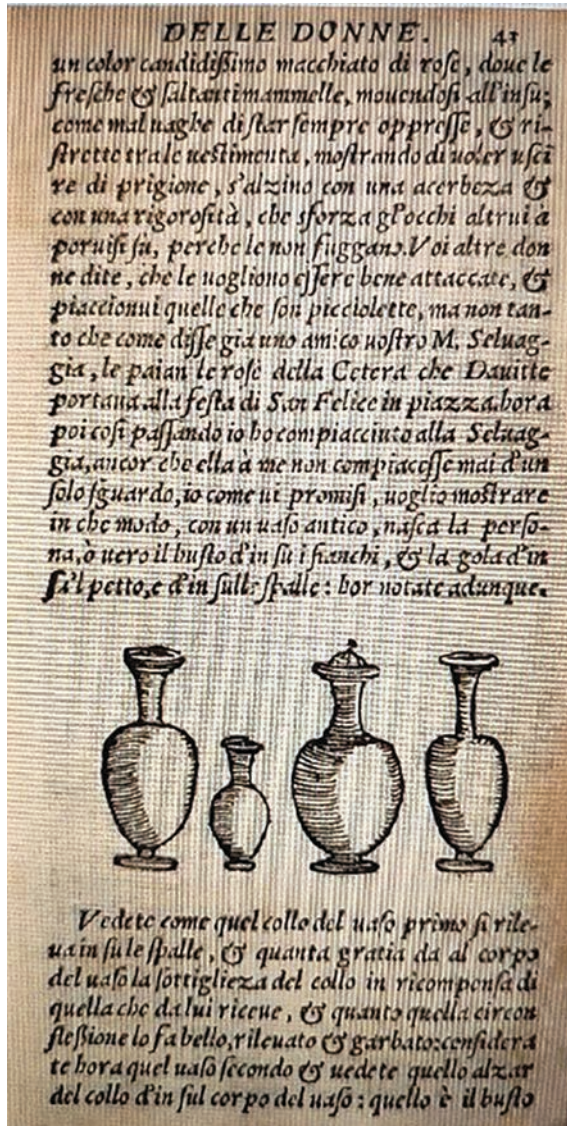 DELLE DONNE. 43
un color candidißimo macchiato di rose, doue le
fresche & saltanti mammelle, mouendosi all'insu;
come mal uaghe di star sempre oppresse, & ri-
strette tra le uestimenta, mostrando di uoler usci
re di prigione, s'alzino con una acerbeza &
con una rigorosità, che sforza gl'occhi altrui à
poruisi su, perche le non fuggano. Voi altre don
ne dite, che le uogliono essere bene attaccate, &
piaccionui quelle che son picciolette, ma non tan-
to che come disse gia uno amico uostro M. Seluag-
gia, le paian le rose della Cetera che Dauitte
portaua alla festa di San Felice in piazza. hora
poi cosi passando io ho compiacciuto alla Seluag-
gia, ancor che ella à me non compiacesse mai d'un
solo sguardo, io come ui promisi, uoglio mostrare
in che modo, con un uaso antico, nasca la perso-
na, ò uero il busto d'in su i fianchi, & la gola d'in
su'l petto, e d'in sulle spalle: hor notate adunque.
Vedete come quel collo del uaso primo si rile-
ua in su le spalle, & quanta gratia da al corpo
del uaso la sottiglieza del collo in ricompensa di
quella che da lui riceue, & quanto quella circon
fleßione lo fa bello, rileuato & garbato: considera
te hora quel uaso secondo & uedete quello alzar
del collo d'in sul corpo del uaso: quello è il busto